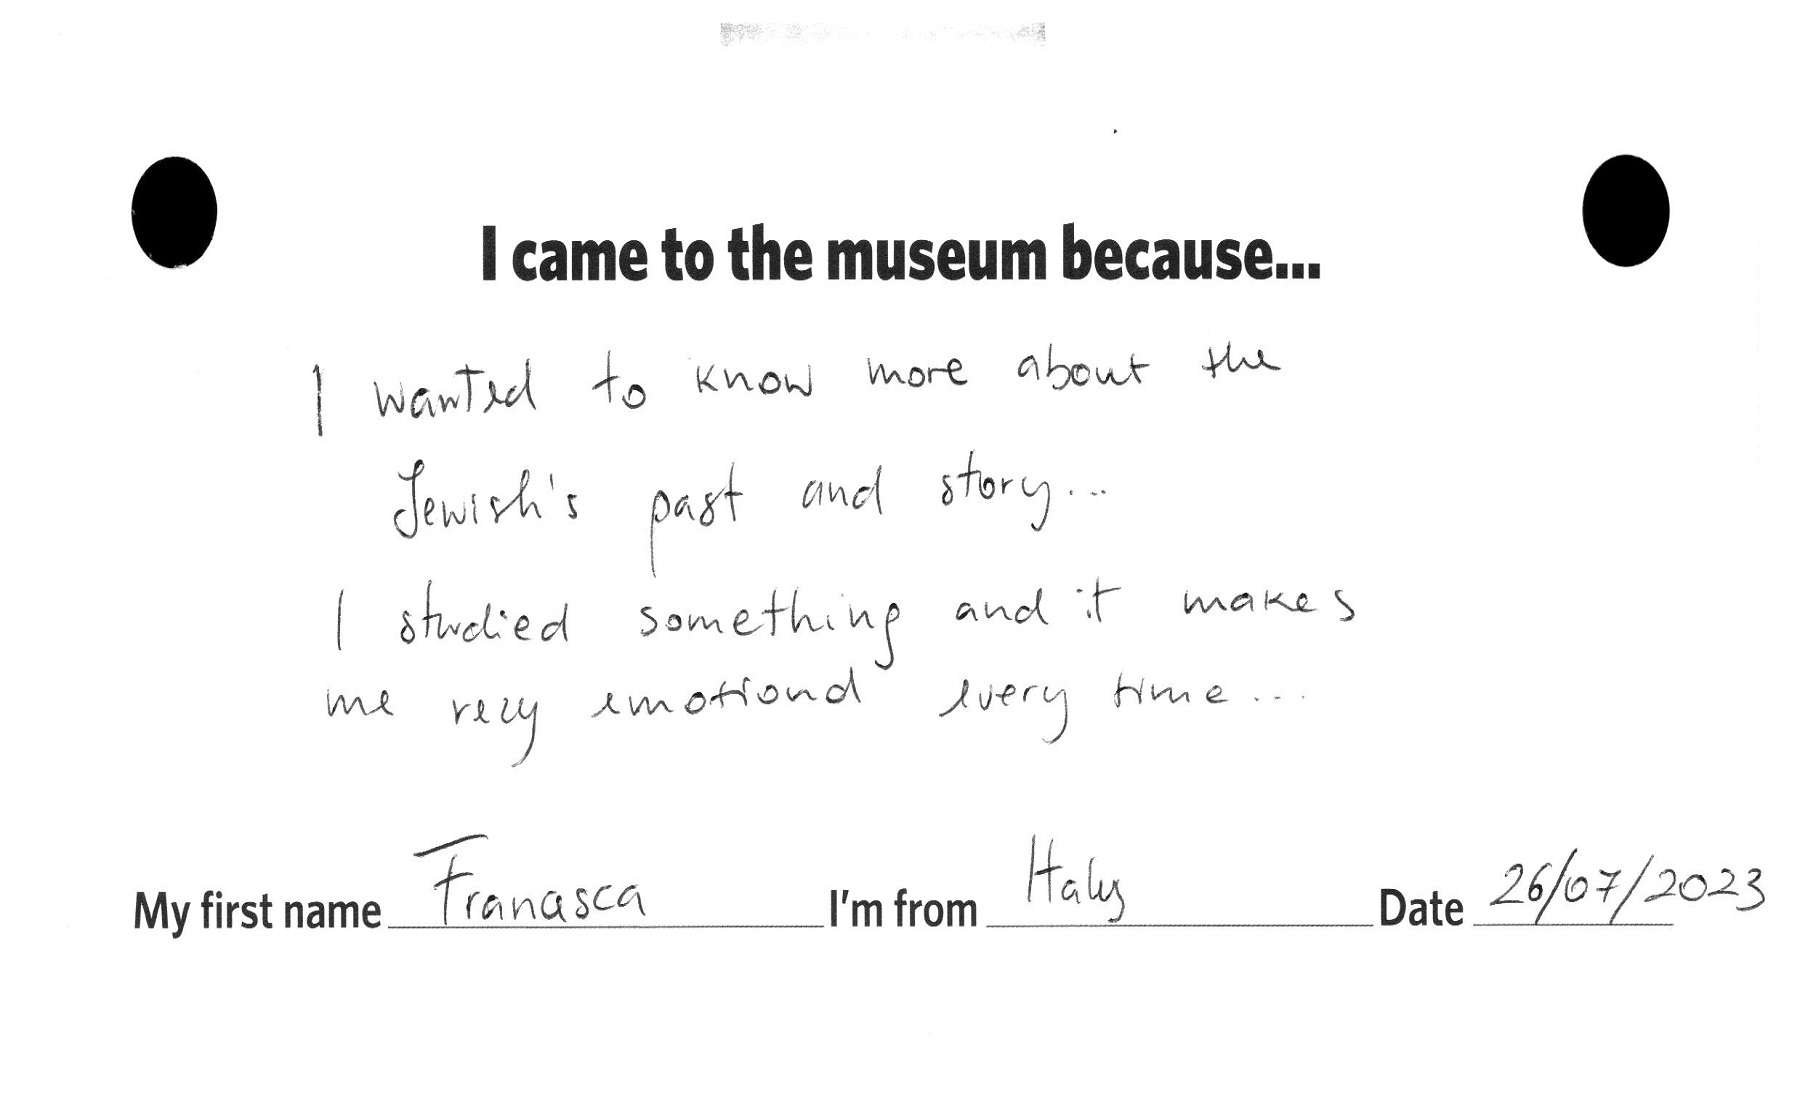 I came to the museum because...
I wanted to know more about the
Jewish's past and story...
I studied something and it makes
me very emotional every time...
My first name Francesca I'm from Italy Date 26/07/2023